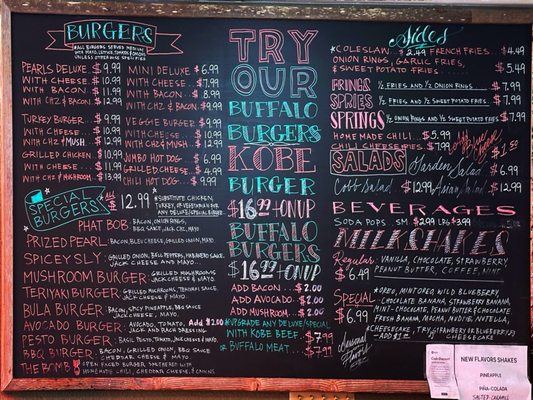 BURGERS
ALL BURGERS SERVED MEDIUM
WITH MAYO, LETTUCE, TOMATO & ONIONS
UNLESS OTHERWISE SPECIFIED
PEARLS DELUXE $9.99
WITH CHEESE $10.99
WITH BACON $11.99
WITH CHZ & BACON $12.99
TURKEY BURGER $9.99
WITH CHEESE $10.99
WITH CHZ & MUSH $12.99
GRILLED CHICKEN $10.99
WITH CHEESE $11.99
WITH CHZ & MUSHROOM $13.99
MINI DELUXE $6.99
WITH CHEESE $7.99
WITH BACON $8.99
WITH CHZ & BACON $9.99
VEGGIE BURGER $9.99
WITH CHEESE $10.99
WITH CHZ & MUSH $12.99
JUMBO HOT DOG $6.99
GRILLED CHEESE $4.99
CHILI HOT DOG $9.99
SPECIAL
BURGERS
ALL $12.99
* SUBSTITUTE CHICKEN,
TURKEY, OR VEGETARIAN FOR
ANY DELUXE/SPECIAL BURGER
PHAT BOB: BACON, ONION RINGS,
BBQ SAUCE, JACK CHZ, MAYO
PRIZED PEARL: BACON, BLEU CHEESE, GRILLED ONION, MAYO.
SPICEY SLY: GRILLED ONION, BELL PEPPERS, HABANERO SAUCE,
JACK CHEESE AND MAYO.
MUSHROOM BURGER: GRILLED MUSHROOMS,
JACK CHEESE & MAYO.
TERIYAKI BURGER: GRILLED MUSHROOMS, TERIYAKI SAUCE,
JACK CHEESE & MAYO.
BULA BURGER: BACON, SPICY PINEAPPLE, BBQ SAUCE,
JACK CHEESE, AND MAYO.
AVOCADO BURGER: AVOCADO, TOMATO, Add $2.00
JACK AND RANCH DRESSING
PESTO BURGER: BASIL PESTO, TOMATO, JACK CHEESE & MAYO.
BBQ BURGER: BACON, GRILLED ONION, BBQ SAUCE
CHEDDAR CHEESE & MAYO
THE BOMB: OPEN FACED BURGER SMOTHERED WITH
HOMEMADE CHILI, CHEDDAR CHEESE, & ONIONS
TRY
OUR
BUFFALO
BURGERS
KOBE
BURGER
$16.99 + ON UP
BUFFALO
BURGERS
$16.99 + ON UP
ADD BACON $2.00
ADD AVOCADO $2.00
ADD MUSHROOM $2.00
*UPGRADE ANY DELUXE/SPECIAL
WITH KOBE BEEF $7.99
OR BUFFALO MEAT $7.99
Sides
*COLESLAW $2.49 FRENCH FRIES $4.49
ONION RINGS, GARLIC FRIES,
& SWEET POTATO FRIES $5.49
FRINGS ½ FRIES AND ½ ONION RINGS $7.99
SPRIES ½ FRIES, AND ½ SWEET POTATO FRIES $7.99
SPRINGS ½ ONION RINGS AND ½ SWEET FRIES $7.99
HOME MADE CHILI $5.99
CHILI CHEESE FRIES $7.99
$1.50
SALADS
Garden Salad $6.99
Cobb Salad $12.99 Asian Salad $12.99
BEVERAGES
SODA POPS SM $2.99 LRG $3.99
MILKSHAKES
Regular $6.49
VANILLA, CHOCOLATE, STRAWBERRY
PEANUT BUTTER, COFFEE, MINT
SPECIAL $6.99
*OREO, MINT OREO, WILD BLUEBERRY
CHOCOLATE BANANA, STRAWBERRY BANANA,
MINT-CHOCOLATE, PEANUT BUTTER & CHOCOLATE
FRESH BANANA, MOCHA, NUTELLA,
*CHEESECAKE, TRY STRAWBERRY OR BLUEBERRY
ADD $1.00 CHEESECAKE
NEW FLAVORS SHAKES
PINEAPPLE
PIÑA-COLADA
SALTED CARAMEL